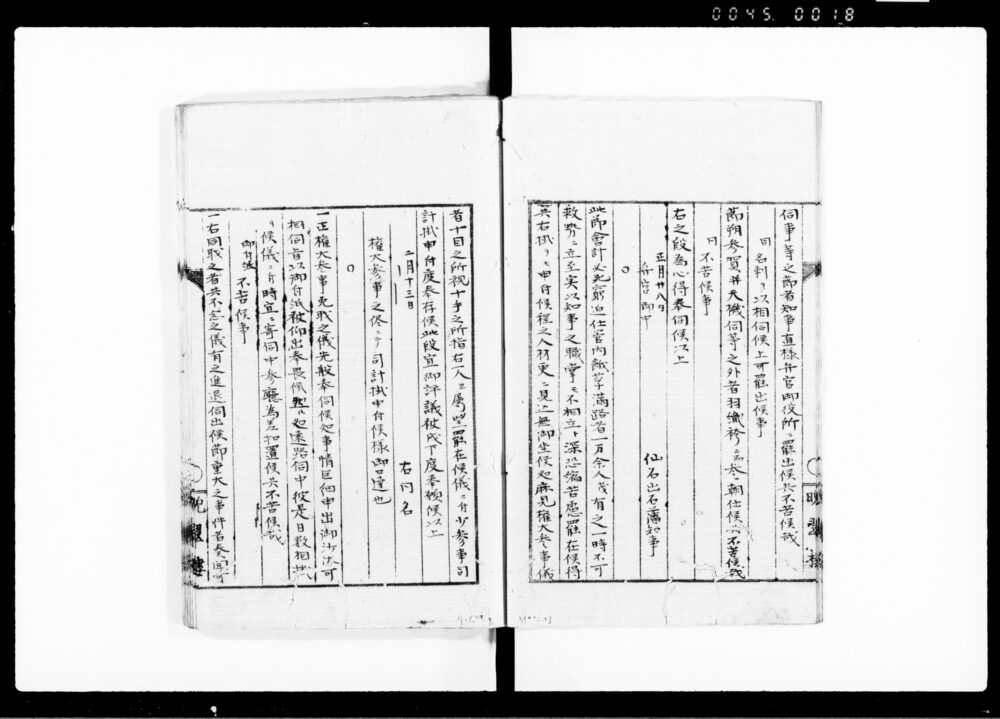 0045. 0018
伺事等之節者知事直様弁官御役所ニ罷出候共不苦候哉
同名刺ヲ以相伺候上可罷出候事
節朔参賀并天機伺等之外者羽織袴ニ而参朝仕候而不苦候哉
同不苦候事
右之段為心得奉伺候以上
正月廿八日
仙石出石藩知事
弁官御中
○
此節会計必至窮迫仕管内餓莩満路者一万余人茂有之一時不可
救勢ニ立至実以知事之職掌モ不相立ト深恐縮苦慮罷在候得
共右掛リモ申付候程之人材更ニ見込無御坐候処麻見権大参事儀
者十目之所視十手之所指右一人ニ属望罷在候儀ニ付少参事司
計掛申付度奉存候此段宜御評議被成下度奉願候以上
二月十三日
右同名
権大参事之侭ニテ司計掛申付候様御口達也
○
一正権大参事免職之儀先般奉伺候処事情巨細申出御沙汰可
相伺旨以御付紙被仰出奉畏候処遠路伺中彼是日数相掛
候儀ニ付時宜ニ寄伺中参庁為差扣置候共不苦候哉
御付紙 不苦候事
一右同職之者共不念之儀有之進退伺出候節重大之事件者奏聞可